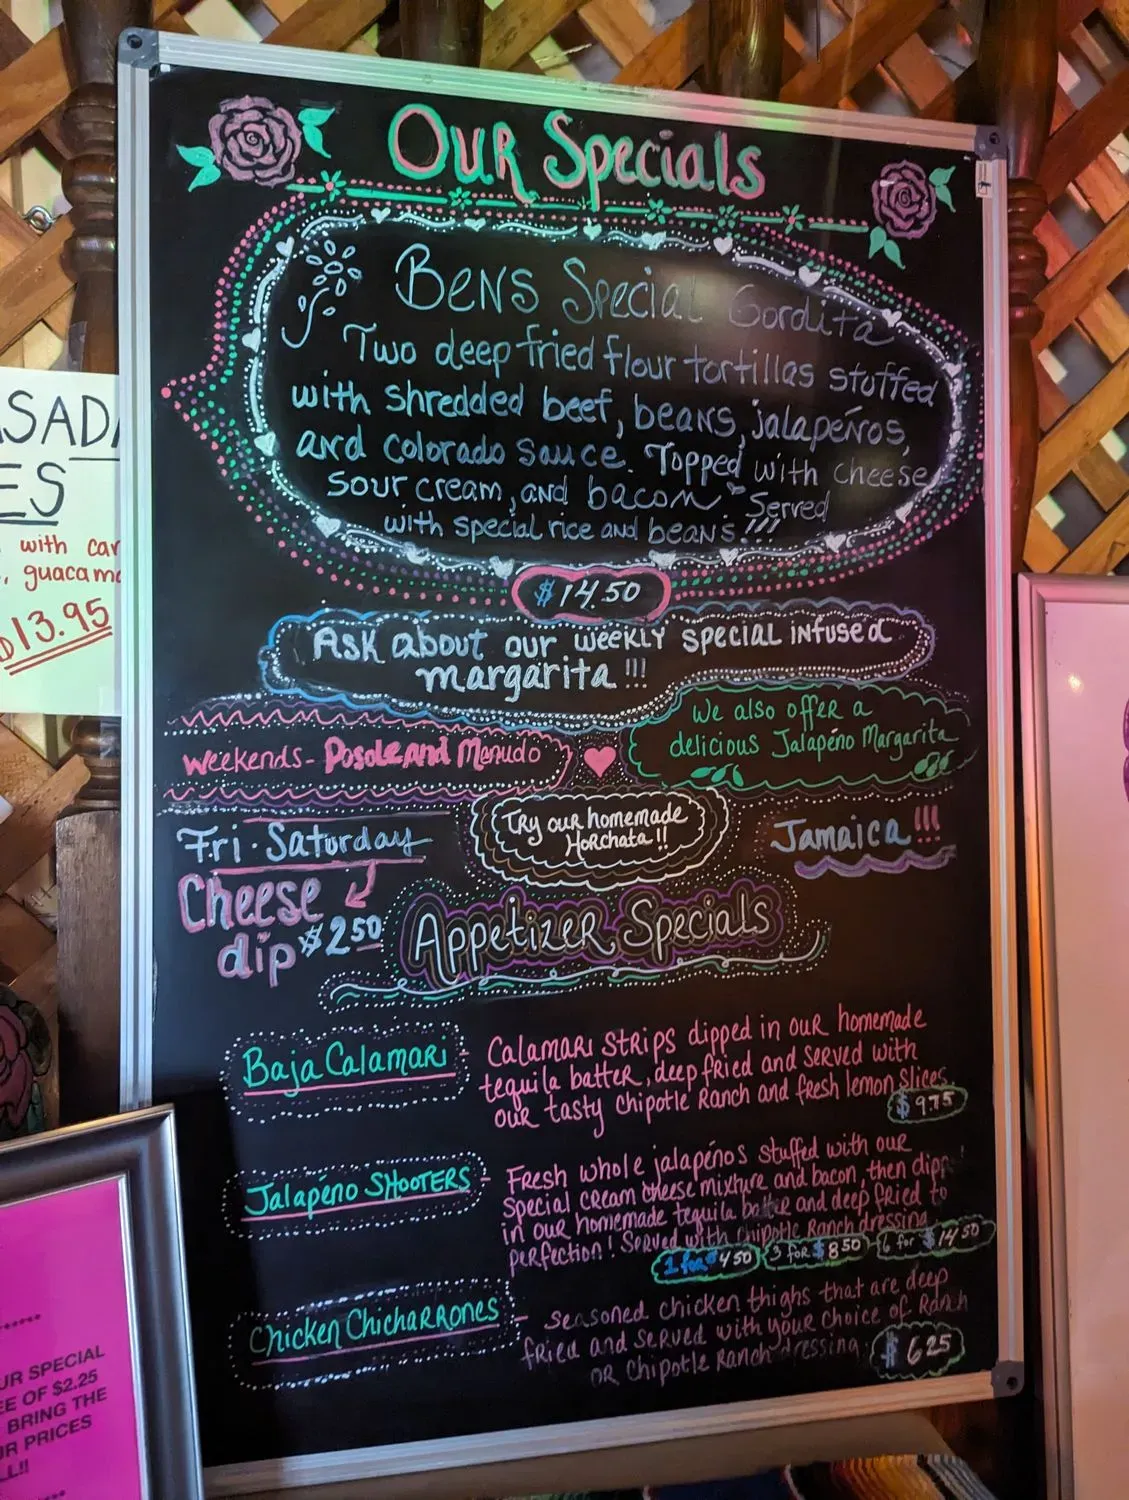 Our Specials
Bens Special Gordita
Two deep fried flour tortillas stuffed
with shredded beef, beans, jalapeños,
and colorado sauce. Topped with cheese
sour cream, and bacon Served
with special rice and beans!!!
$14.50
Ask about our weekly special infused
margarita!!!
We also offer a
delicious Jalapeño Margarita
Weekends - Posole and Menudo
Try our homemade
Horchata!!
Jamaica!!!
Fri. Saturday
Cheese
dip $2.50
Appetizer Specials
Baja Calamari - Calamari strips dipped in our homemade
tequila batter, deep fried and served with
our tasty chipotle Ranch and fresh lemon slices
$9.75
Jalapéno Shooters - Fresh whole jalapéños stuffed with our
special cream cheese mixture and bacon, then dipp
in our homemade tequila batter and deep fried to
perfection! Served with chipotle Ranch dressing
1 for $4.50 3 for $8.50 6 for $14.50
Chicken Chicharrones - seasoned chicken thighs that are deep
fried and served with your choice of Ranch
or chipotle Ranch dressing.
$6.25
SADA
ES
with car
, guacamo
13.95
UR SPECIAL
EE OF $2.25
BRING THE
R PRICES
LL!!